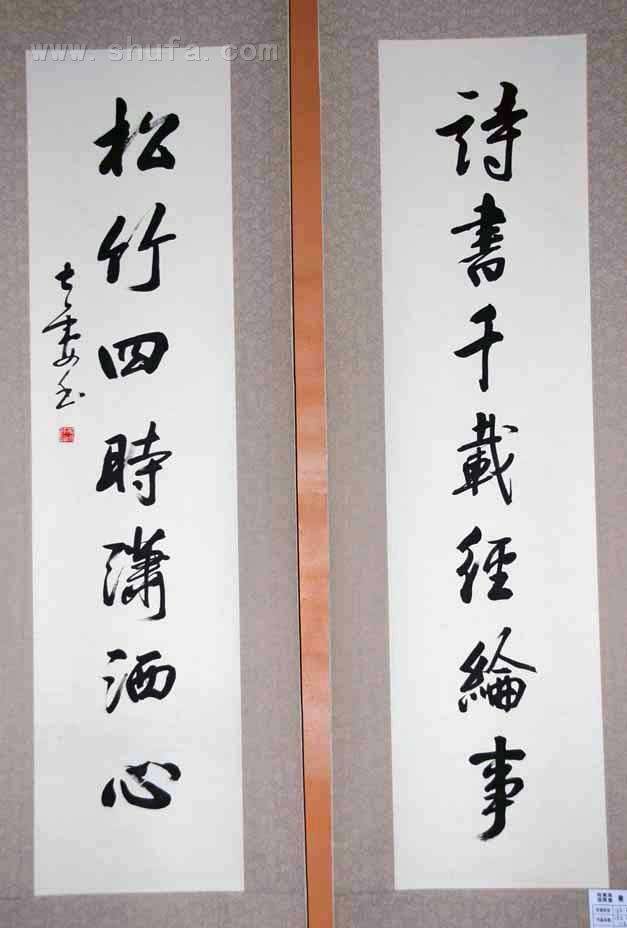 www.shufa.com
詩書千載經綸事
松竹四時瀟洒心